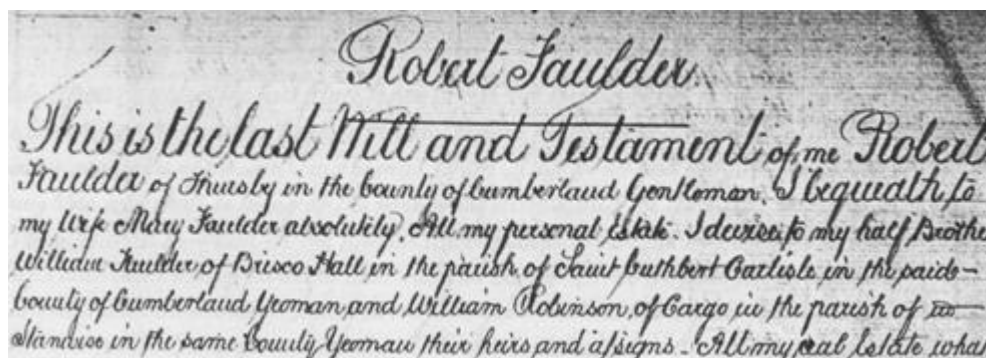 Robert Faulder
This is the last Will and Testament of me Robert
Faulder of Thursby in the County of Cumberland Gentleman. I bequeath to
my Wife Mary Faulder absolutely. All my personal Estate. I devise to my half Brothe
William Faulder of Brisco Hall in the parish of Saint Cuthbert Carlisle in the said –
County of Cumberland Yeoman and William Robinson of Cargo in the parish of
Stanwise in the same County Yeoman their heirs and assigns. All my real Estate what